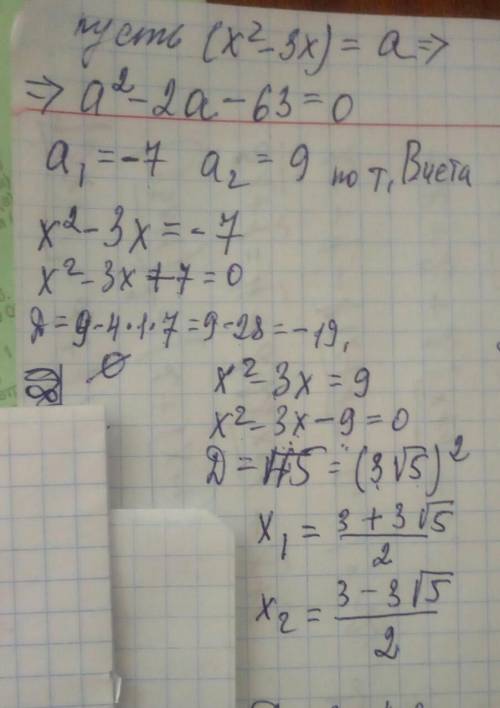 пусть (x²-3x) = a ⇒
⇒ a²-2a-63=0
a₁ = -7 a₂ = 9 по т, Виета
x²-3x=-7
x²-3x+7=0
Д = 9-4·1·7=9-28=-19,
∅
x²-3x=9
x²-3x-9=0
D = 45 = (3√5)²
x₁ = (3+3√5)/2
x₂ = (3-3√5)/2